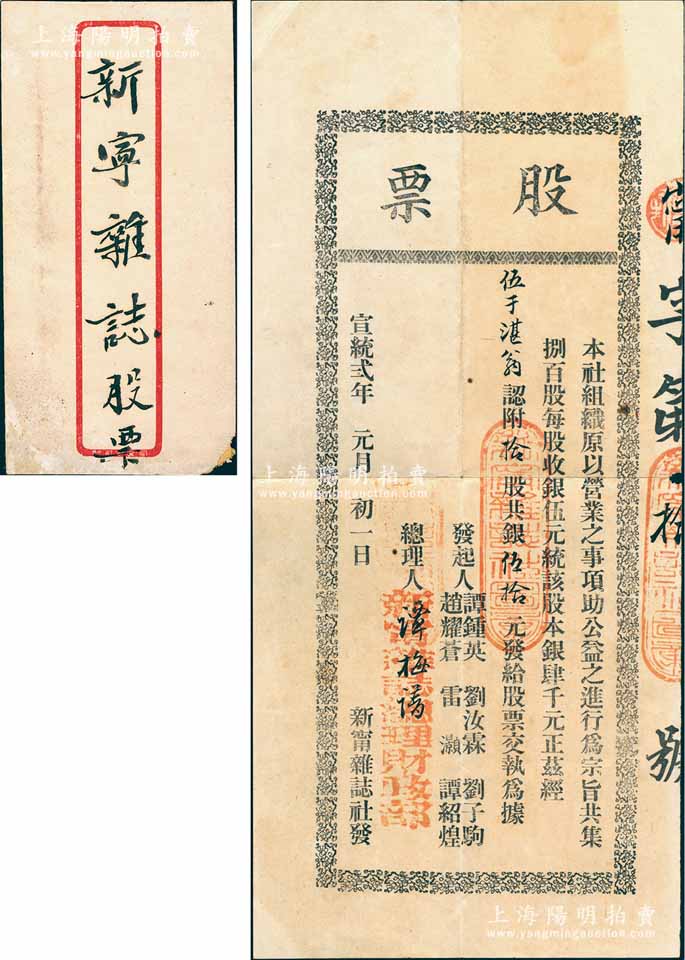 上海陽明拍賣
www.yangmingauction.com
新寧雜誌股票
上海陽明拍賣
www.yangmingauction.com
股票
本社組織原以營業之事項助公益之進行爲宗旨共集
捌百股每股收銀伍元統該股本銀肆千元正茲經
伍于湛翁認附拾股共銀伍拾元發給股票交執爲據
發起人譚鍾英 劉汝霖 劉子駒
趙耀蒼 雷灝 譚紹煌
總理人譚梅
宣統弍年 元月 初一日
新甯雜誌社發
字第 拾 號
上海陽明拍賣
www.yangmingauction.com
上海陽明拍賣
www.yangmingauction.com